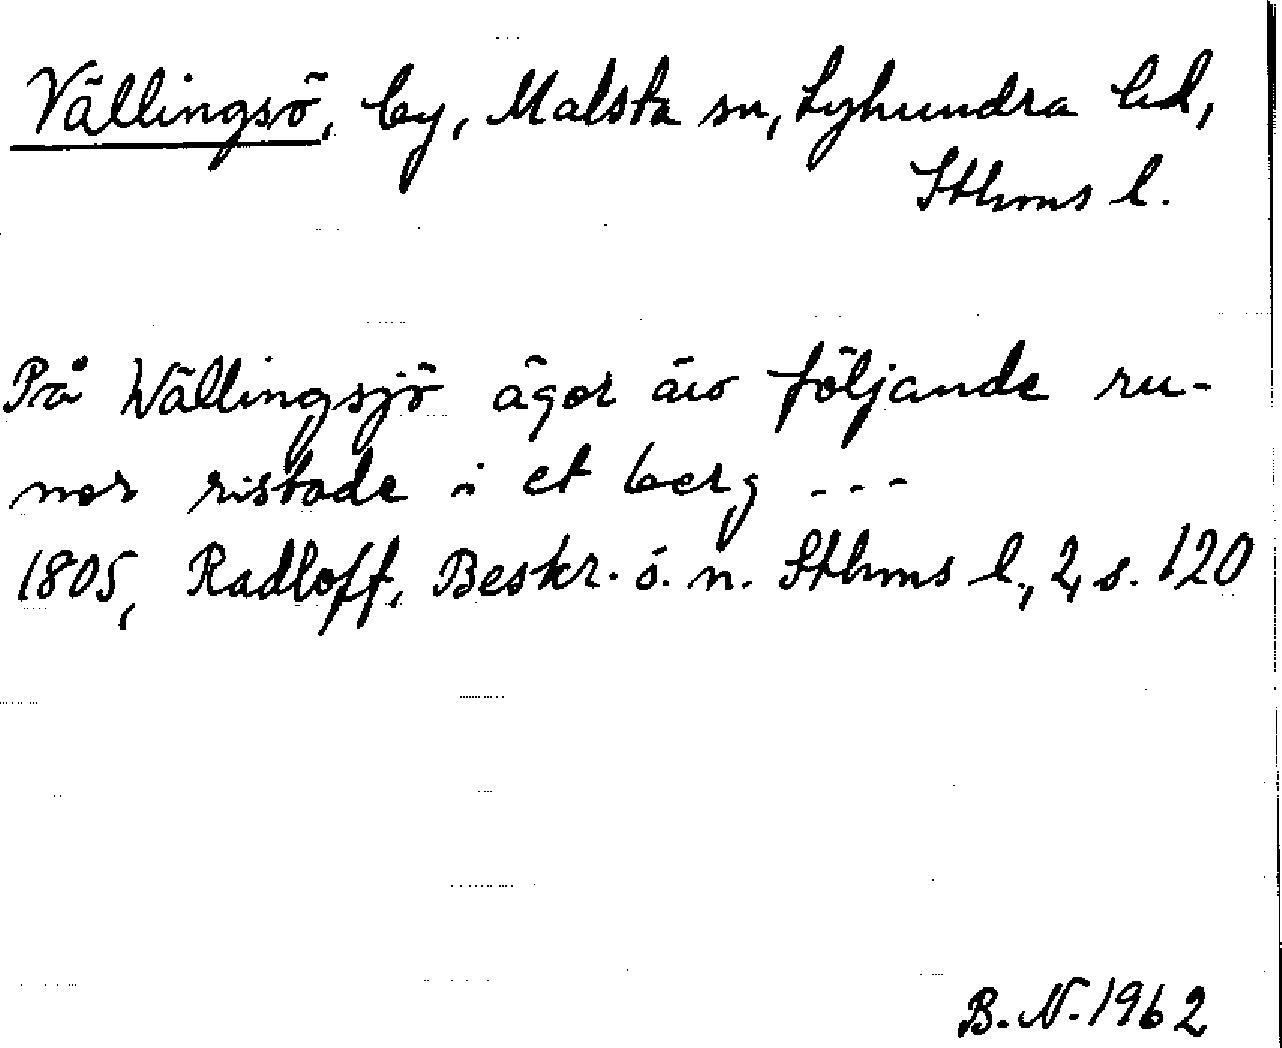 Vällingsö, by, Malsta sn, Lyhundra hd,
Sthms l.
På Wällingsjö ägor äro följande ru-
nor ristade i et berg ---
1805, Radloff, Beskr. ö. n. Sthms l., 2, s. 120
B. N. 1962